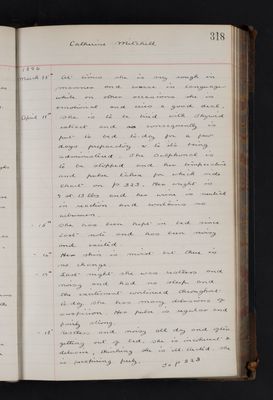 Catherine Mitchell
318
March 28th At times she is very rough in
manner and coarse in language
while on other occasions she is
emotional and cries a good deal.
April 11th She is to be tried with thyroid
extract and consequently is
put to bed to-day for a few
days preparatory to its being
administered. The Sulphonal is
to be stopped and her temperature
and pulse taken for which vide
chart on p 323. Her weight is
and her urine is acid
in reaction and contains no
albumen.
She has been kept in bed since
last note and has been noisy
and excited.
Her skin is moist but there is
no change.
Last night she was restless and
noisy and had no sleep and
the excitement continued throughout
to-day she has many delusions of
suspicion. Her pulse is regular and
fairly strong.
Restless and noisy all day and often
getting out of bed. She is incoherent &
delusive, thinking she is ill-treated. She
is perspiring freely.
To p 323